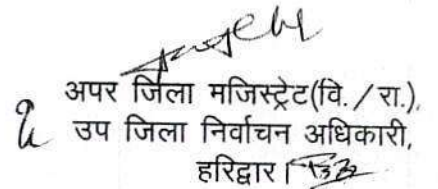 अपर जिला मजिस्ट्रेट(वि./रा.),
उप जिला निर्वाचन अधिकारी,
हरिद्वार।